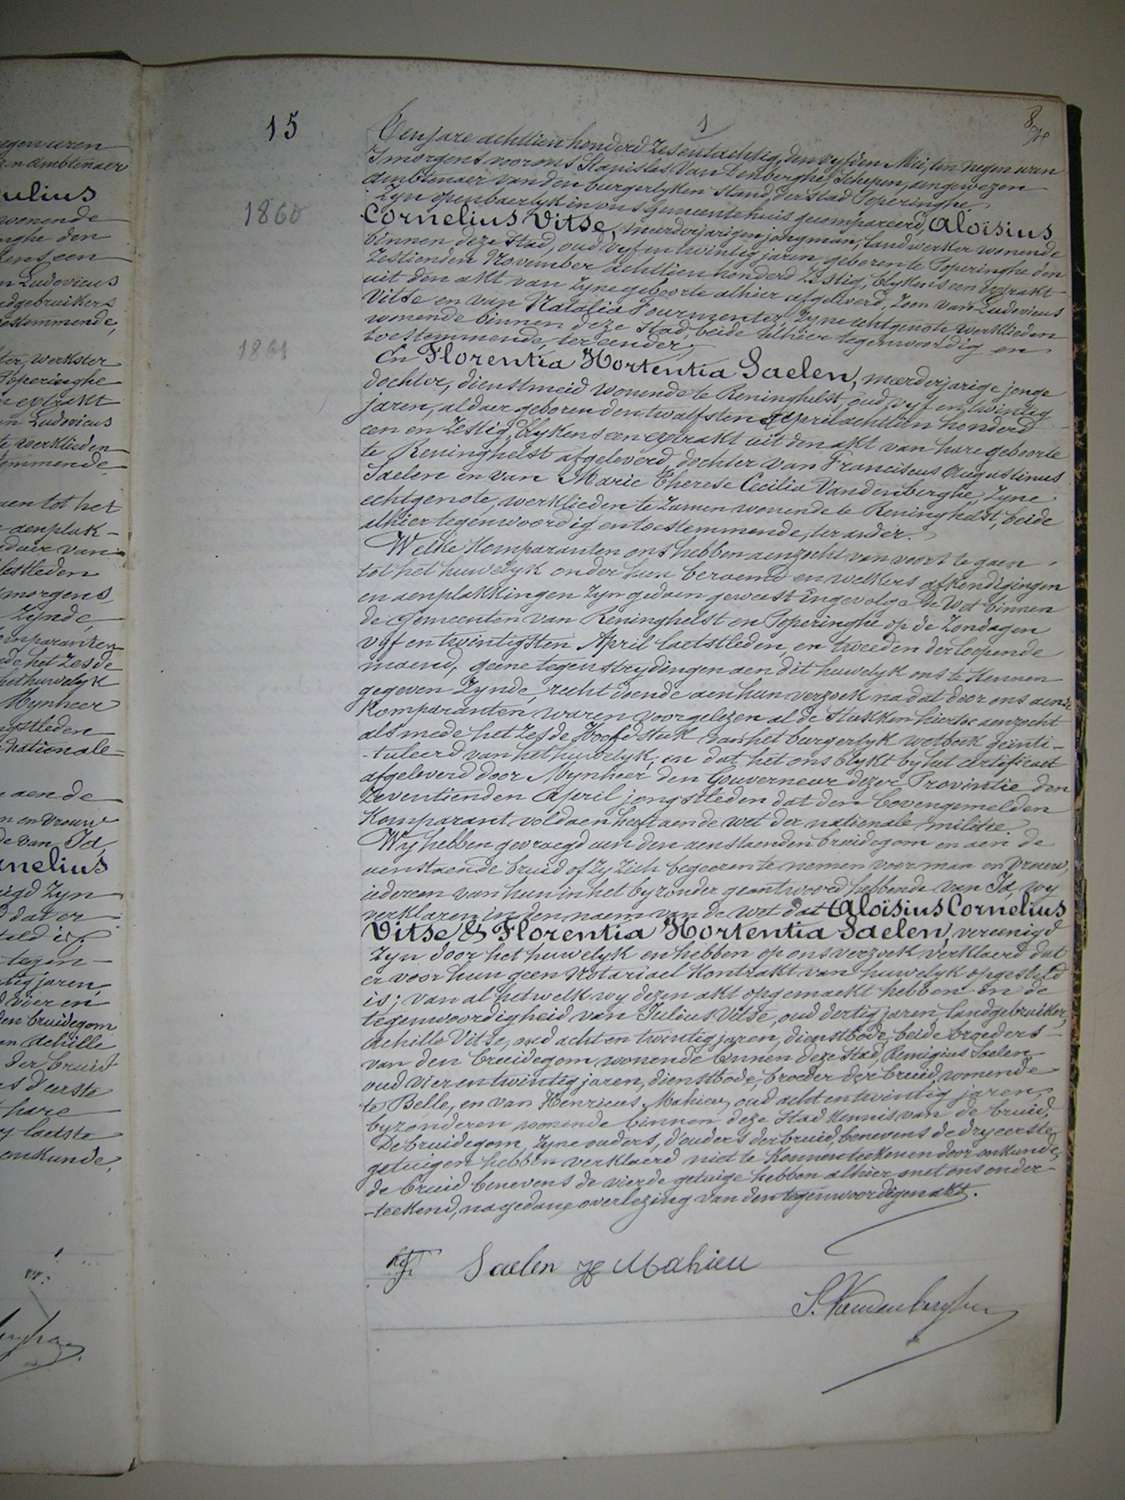 15
8
Ten jare achttien honderd zesentachtig, den vyfden Mei, ten negen uren
'smorgens, voor ons Stanislas Van Lenberghe, Schepen, aengewezen
ambtenaer van den burgerlyken stand, der stad Poperinghe.
Zyn openbaerlyk in ons Gemeentehuis gecompareerd, Aloïsius
1860
Cornelius Vitse, meerderjarigen jongman, landwerker wonende
binnen deze Stad, oud vyf en twintig jaren, geboren te Poperinghe den
zestienden November achttien honderd zestig, blykens een extrakt
uit den akt van zyne geboorte alhier afgeleverd, zoon van Ludovicus
Vitse en van Natalia Fournzenter, zyne echtgenote, werklieden
wonende binnen deze Stad, beide alhier tegenwoordig en
toestemmende, ter eender;
1861
En Florentia Hortentia Saelen, meerderjarige jonge
dochter, dienstmeid wonende te Reninghelst, oud vyf en twintig
jaren, aldaer geboren den twalfsten April achttien honderd
een en zestig, blykens een extrakt uit den akt van hare geboorte
te Reninghelst afgeleverd, dochter van Franciscus Augustinus
Saelen en van Marie Therese Cecilia Vandenberghe, zyne
echtgenote, werklieden te zamen wonende te Reninghelst, beide
alhier tegenwoordig en toestemmende, ter ander.
Welke komparanten ons hebben aenzocht van voort te gaen
tot het huwelyk onder hun beraemd en welkers afkondigingen
en aenplakkingen zyn gedaen geweest ingevolge de Wet binnen
de Gemeenten van Reninghelst en Poperinghe op de Zondagen
vyf en twintigsten April laetstleden, en tweeden der loopende
maend, geene tegenstrydingen aen dit huwelyk ons te kennen
gegeven zynde, recht doende aen hun verzoek na dat door ons aen de
komparanten, waren voorgelezen al de stukken hiertoe aenzocht
als mede het zesde Hoofdstuk van het burgerlyk wetboek geinti-
-tuleerd van het huwelyk, en dat het ons blykt by het certificaet
afgeleverd door Mynheer den Gouverneur dezer Provintie den
zeventienden April jongstleden dat den bovengemelden
Komparant voldaen heeft aen de wet der nationale militie.
Wy hebben gevraegd aen den aenstaenden bruidegom en aen de
aenstaende bruid of zy zich begeeren te nemen voor man en vrouw,
iedereen van hun in het byzonder geantwoord hebbende van Ja, wy
verklaren in den naem van de wet dat Aloïsius Cornelius
Vitse & Florentia Hortentia Saelen, vereenigd
zyn door het huwelyk en hebben op ons verzoek verklaerd dat
er voor hun geen notariael kontrakt van huwelyk opgesteld
is; van al hetwelk wy dezen akt opgemaekt hebben in de
tegenwoordigheid van Julius Vitse, oud dertig jaren, landgebruiker,
Achille Vitse, oud acht en twintig jaren, dienstbode, beide broeders
van den bruidegom, wonende binnen deze Stad, Remigius Saelen
oud vier en twintig jaren, dienstbode, broeder der bruid, wonende
te Belle, en van Henricus Mahieu, oud acht en twintig jaren,
byzonderen wonende binnen deze Stad kennis van de bruid.
De bruidegom, zyne ouders, d'ouders der bruid, benevens de dry eerste
getuigen hebben verklaerd niet te konnen teekenen door onkunde,
de bruid benevens de vierde getuige hebben alhier met ons onder-
-teekend, na gedane overlezing van den tegenwoordigen akt.
Saelen H Mahieu
S. Vanlenberghe